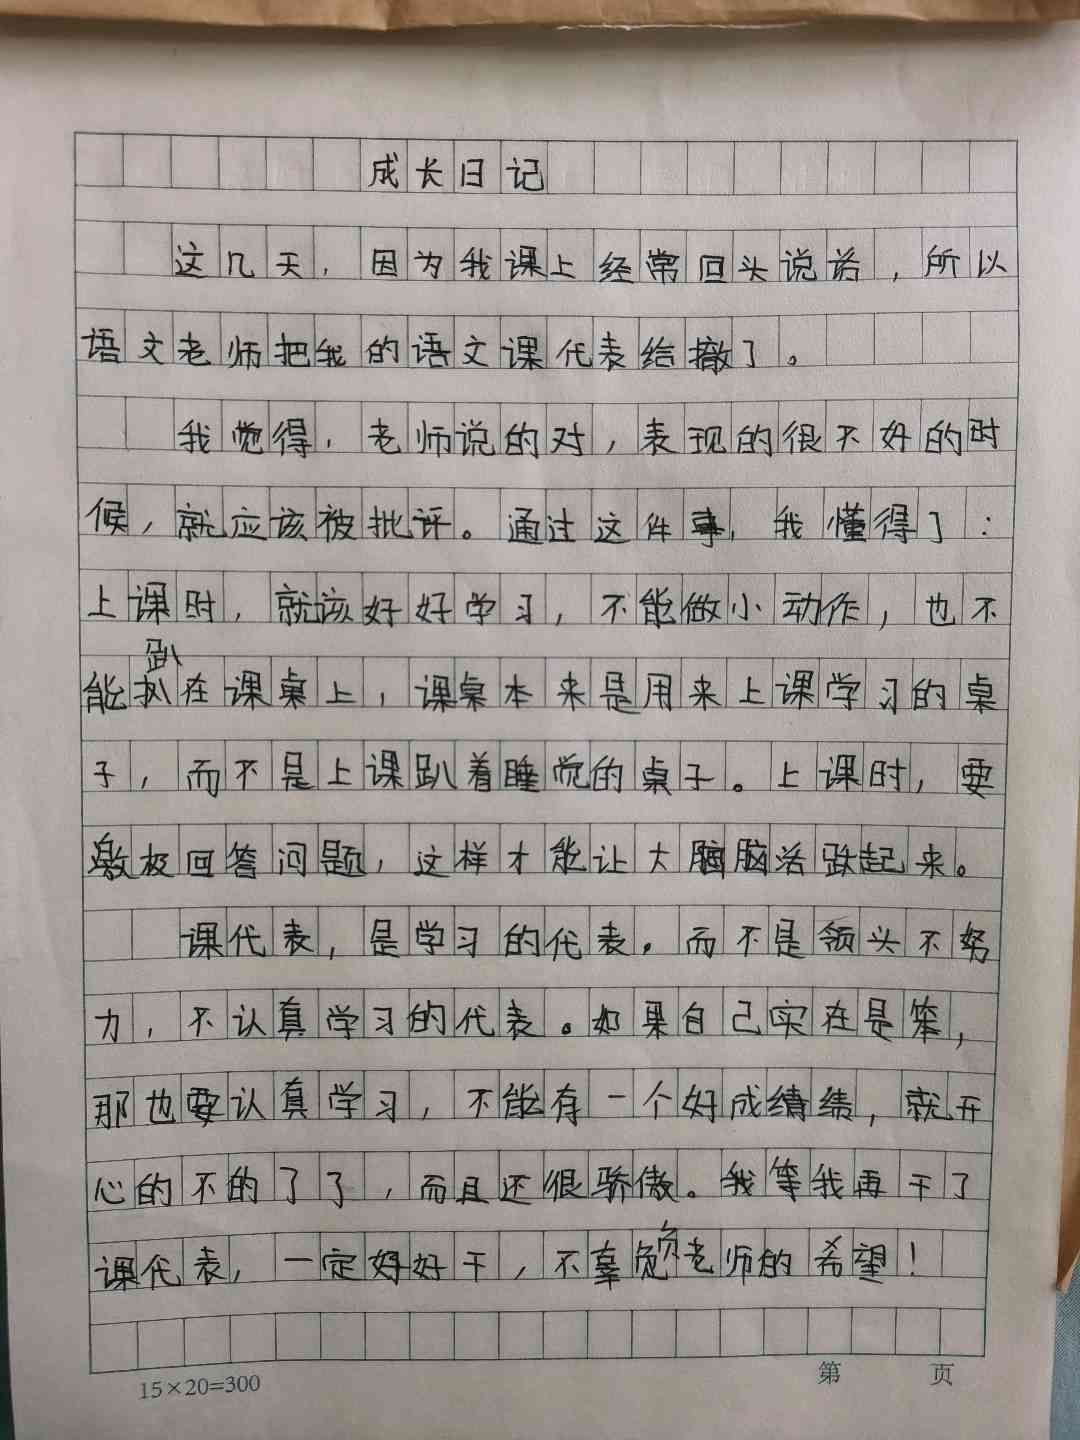 成长日记
这几天，因为我课上经常回头说话，所以
语文老师把我的语文课代表给撤了。
我觉得，老师说的对，表现的很不好的时
候，就应该被批评。通过这件事，我懂得了：
上课时，就该好好学习，不能做小动作，也不
趴
能扒在课桌上，课桌本来是用来上课学习的桌
子，而不是上课趴着睡觉的桌子。上课时，要
极回答问题，这样才能让大脑脑活跃起来。
课代表，是学习的代表，而不是领头不努
力，不认真学习的代表。如果自己实在是笨，
那也要认真学习，不能有一个好成绩绩，就开
心的不的了了，而且还很骄傲。我等我再干了
负
课代表，一定好好干，不辜老师的希望！
15×20=300
第 页